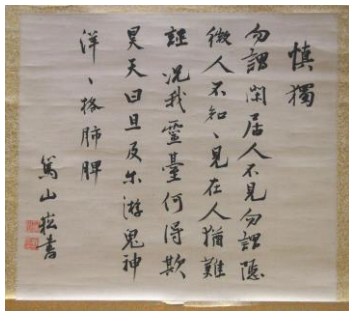 慎獨
勿謂閑居人不見勿謂隱
微人不知、見在人猶難
誣況我靈臺何得欺
昊天曰旦及尓游鬼神
洋、移肺脾
篤山崧書